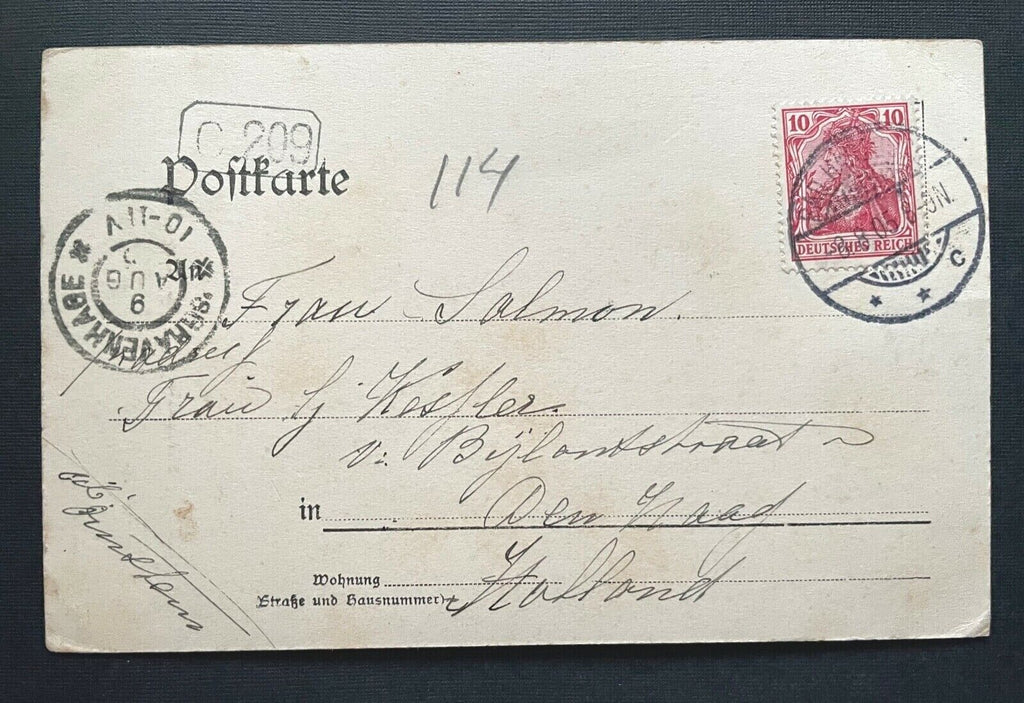 C 209
Postkarte
114
10 10
DEUTSCHES REICH
8-9N.
C
'SGRAVENHAGE
10-11V
9
AUG
5
An
Frau Salmon.
Frau Kessler.
v. Bylandtstraat
in Den Haag
Wohnung Holland
(Straße und Hausnummer)